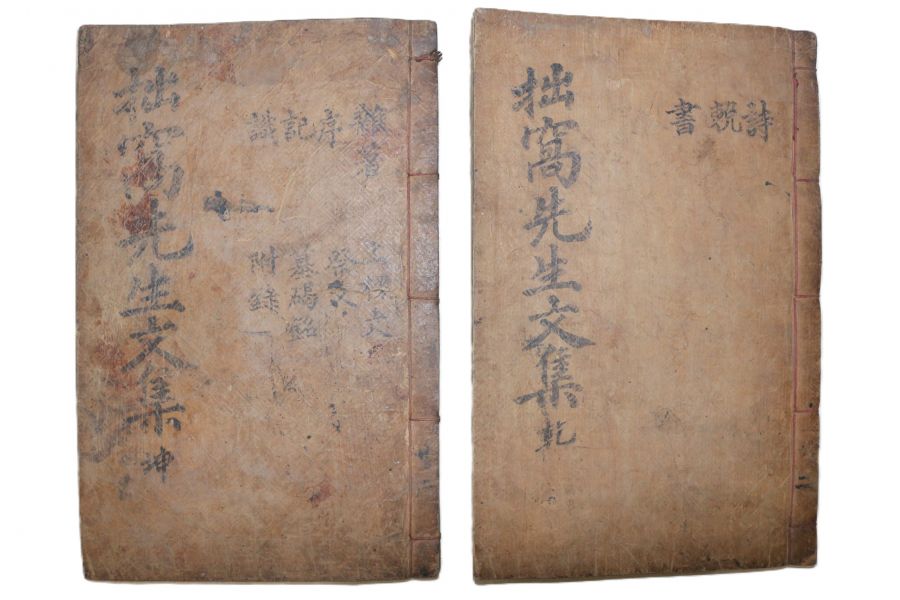 詩
輓
書
拙窩先生文集 乾
二
雜著
序
記
識
上樑文
祭文
墓碣銘
附錄
拙窩先生文集 坤
二